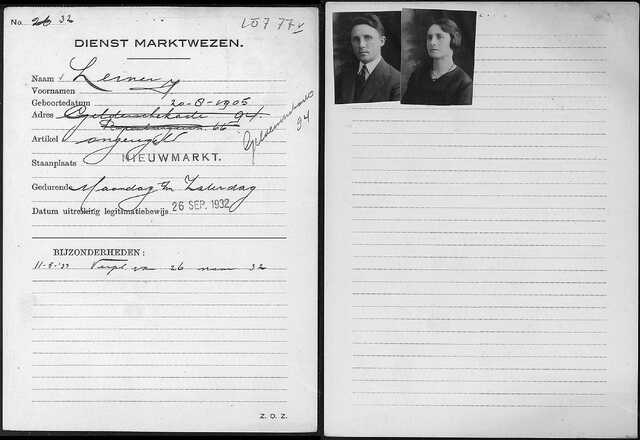 No. 26 32
LO7 77 v
DIENST MARKTWEZEN.
Naam Lerner
Voornamen
Geboortedatum 20-8-1905
Adres Geldersekade 94.
66
Artikel ongeregeld
94
Staanplaats NIEUWMARKT.
Gedurende Maandag t/m Zaterdag
Datum uitreiking legitimatiebewijs 26 SEP. 1932
BIJZONDERHEDEN:
11-8-'33 Verpl van 26 naar 32
Z. O. Z.